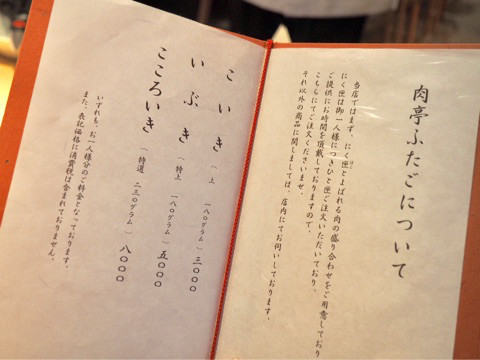 肉亭ふたごについて
当店ではまず、にく匣とよばれる肉の盛り合わせをご用意しており
にく匣は御一人様につきひと匣ご注文いただいており、
ご提供にお時間を頂戴しておりますので、
こちらにてご注文くださいませ。
それ以外の商品に関しましては、店内にてお伺いしております。
こいき（上 一八〇グラム）三〇〇〇
いぶき（特上 一八〇グラム）五〇〇〇
こころいき（特選 二三〇グラム）八〇〇〇
いずれも、お一人様分のご料金となっております。
また、表記価格に消費税は含まれておりません。